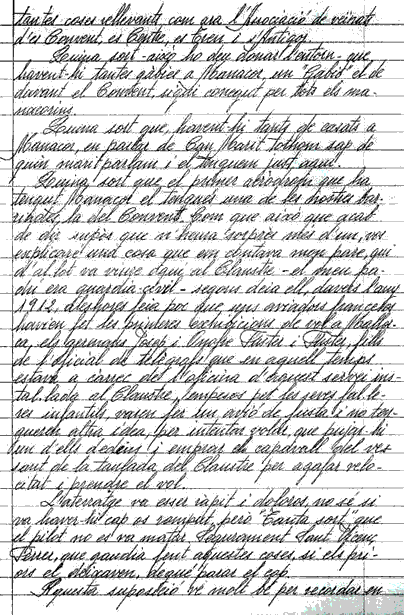 tantes coses rellevants, com ara l'Associació de veïnat
d'es Convent, es Cable, es Tren i s'Antigor.
Quina sort - això ho deu donar l'entorn - que,
havent-hi tantes gàbies a Manacor, un Gabió, el de
davant el Convent, sigui conegut per tots els ma-
nacorins.
Quina sort que, havent-hi tants de casats a
Manacor, en parlar de Can Marit tothom sap de
quin marit parlam i el tenguem just aquí.
Quina sort que el primer aeròdrom que ha
tengut Manacor el tengués una de les nostres bar-
riades, la del Convent. Com que això que acab
de dir supòs que n'heurà sorprès més d'un, vos
explicaré una cosa que em contava mon pare, qui
d'al·lot va viure aquí, al Claustre - el meu pa-
drí era guàrdia civil - segons deia ell, devers l'any
1912, després feia poc que uns aviadors francesos
havien fet les primeres exhibicions de vol a Mallor-
ca, els germans Josep i Onofre Fuster i Fuster, fills
de l'oficial de telègrafs que en aquell temps
estava a càrrec de l'oficina d'aquest servei ins-
tal·lada al Claustre, empesos pel les seves fal·le-
res infantils, varen fer un avió de fusta i no ten-
gueren altra idea, per intentar volar, que pujar-hi
un d'ells d'edins i emprar el capdavall del ves-
sant de la taulada del Claustre per agafar velo-
citat i prendre el vol.
L'aterratge va esser ràpit i dolorós, no sé si
va haver-hi cap os romput, però "Tanta sort" que
el pilot no es va matar. Segurament Sant Vicenç
Ferrer, que gaudia fent aquestes coses, si els pri-
ors el deixaven, degué parar el cop.
Aquesta suposició ve molt bé per recordar en